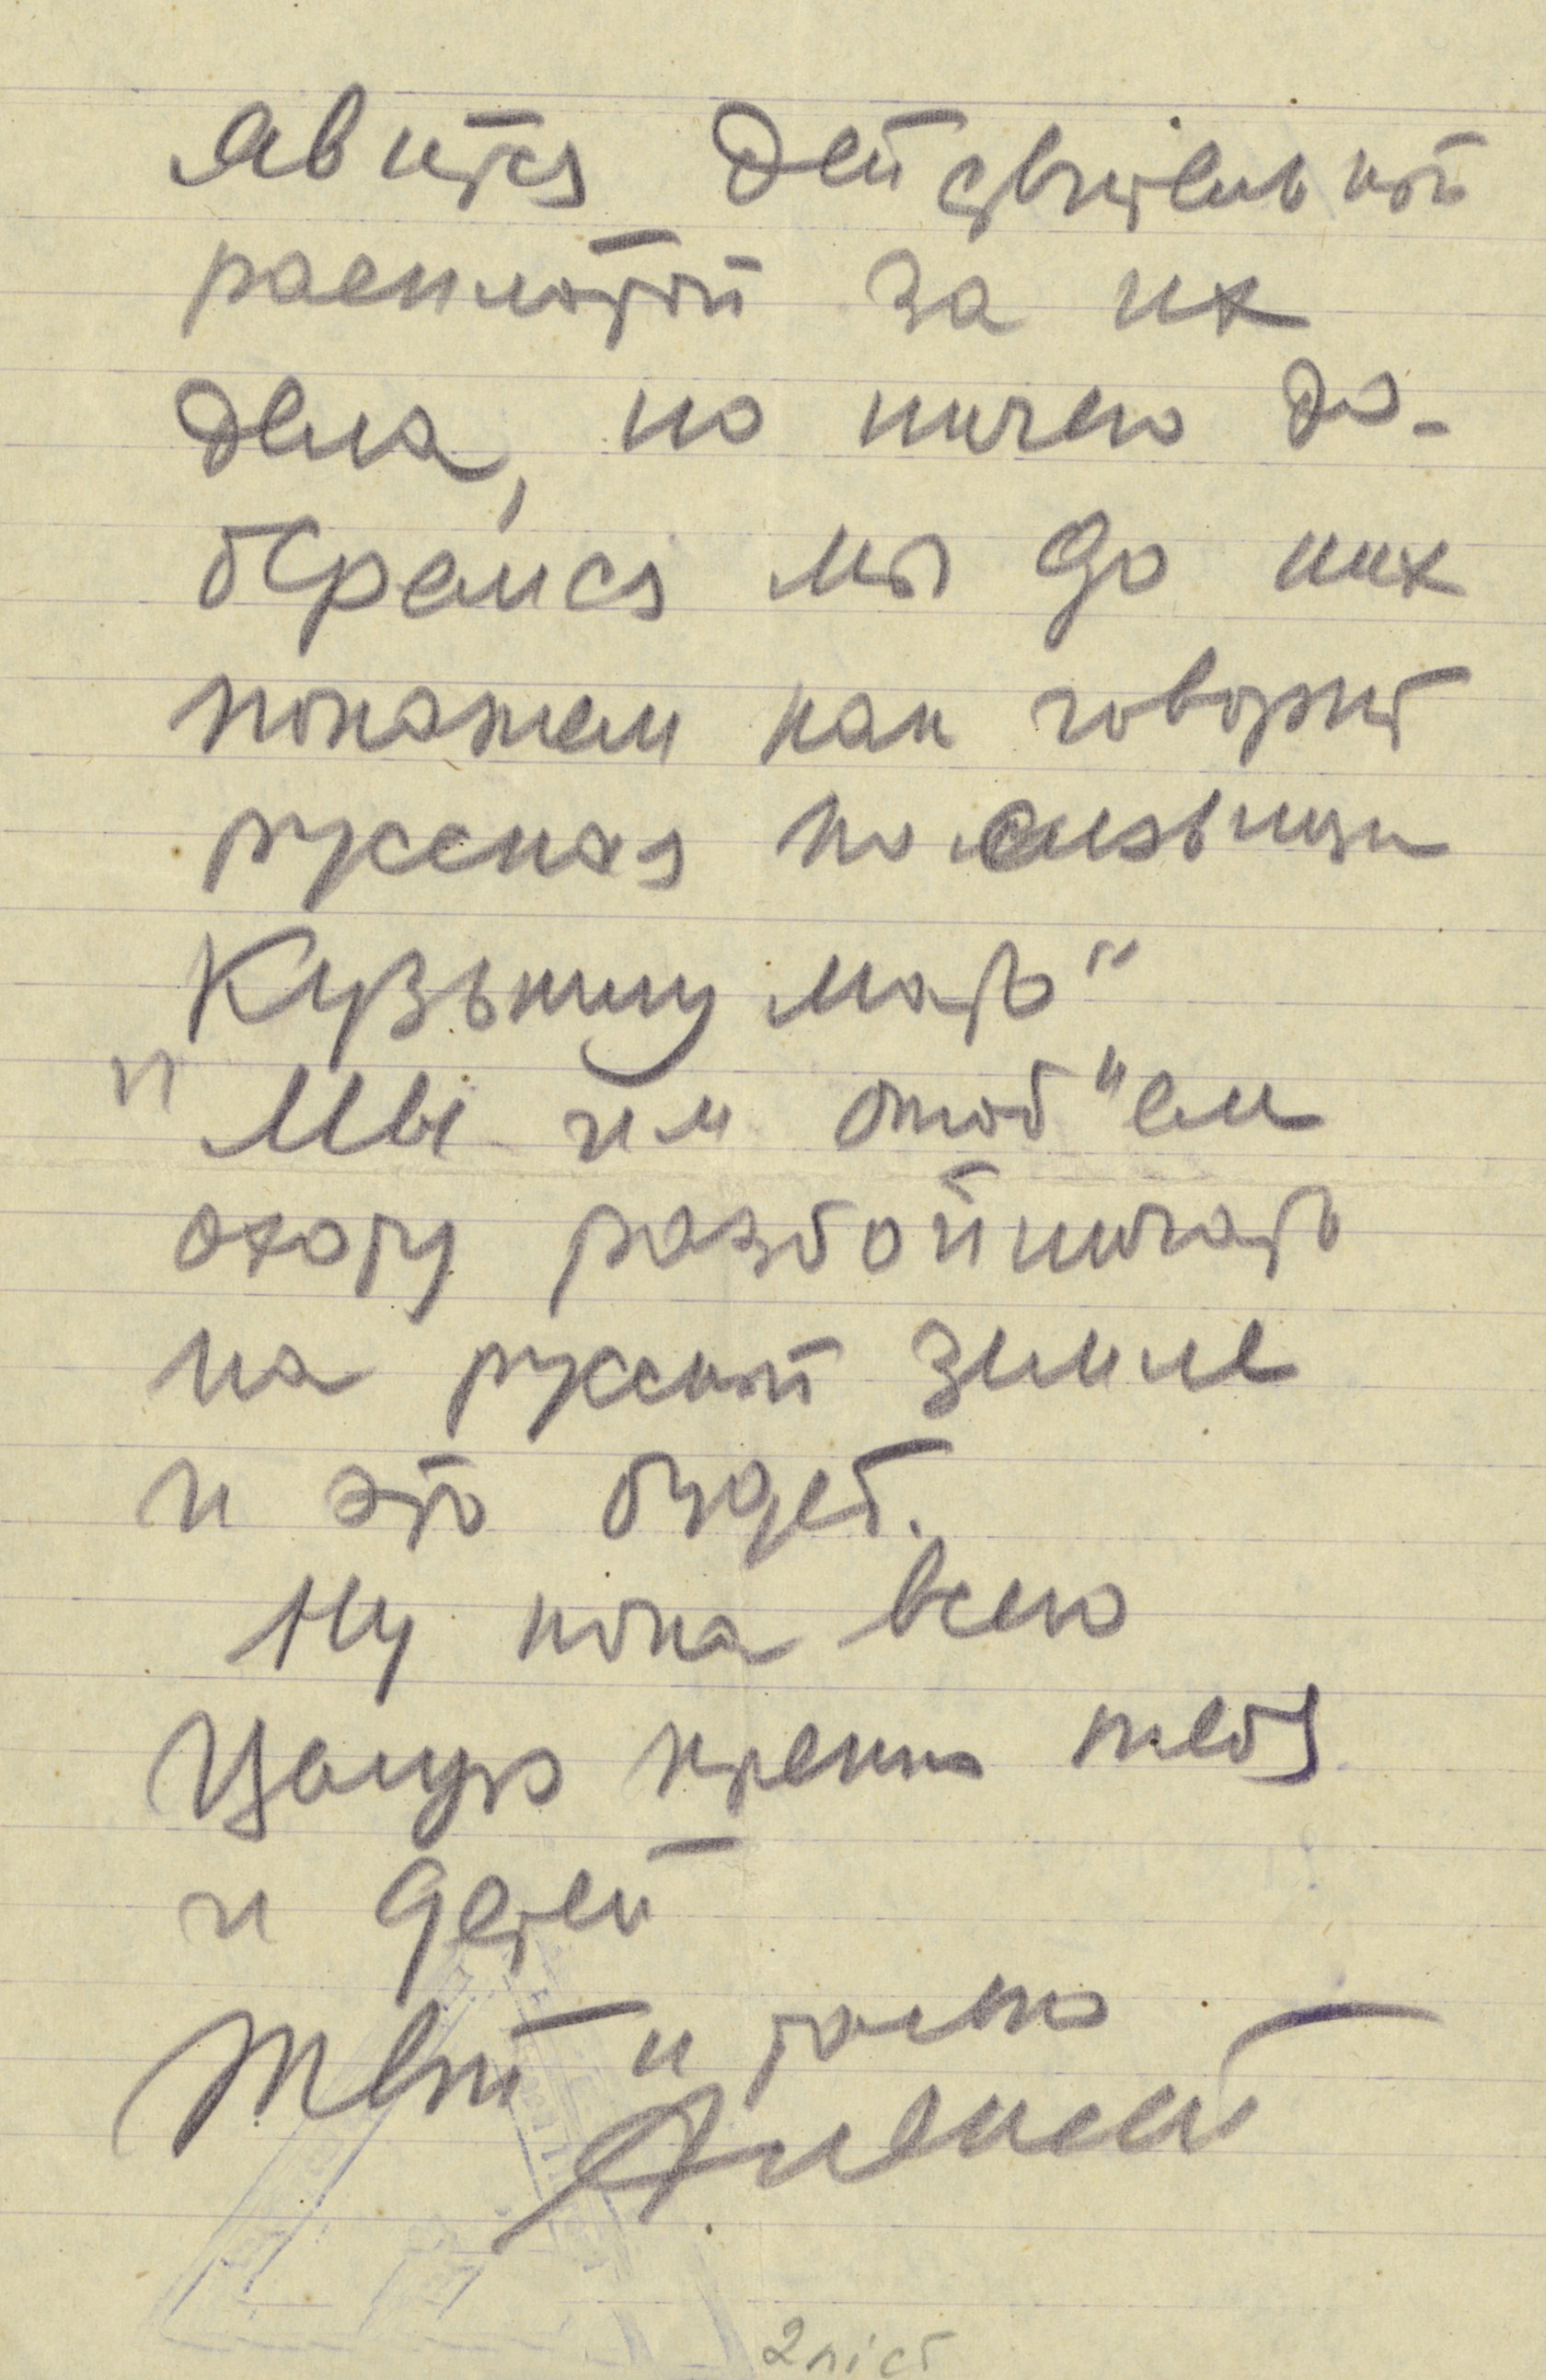 явится действительной
расплатой за их
дела, но ничего до-
беремся мы до них
покажем как говорит
русская пословица
Кузькину мать"
" Мы им отоб"ем
охоту разбойничать
на русской земле
и это будет.
Ну пока всего
Целую крепко тебя
и детей
Твой и только
Алексей
2 лист